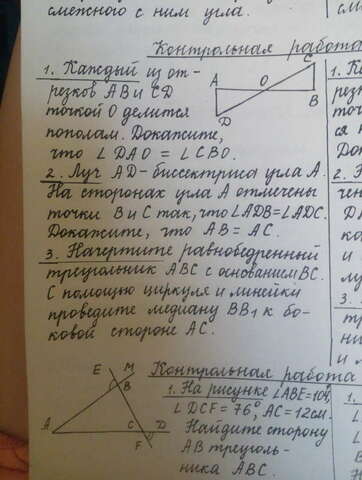 смежного с ним угла.
Контрольная работа
1. Каждый из от-
резков AB и CD
точкой O делится
пополам. Докажите,
что ∠DAO = ∠CBO.
A
O
C
B
D
2. Луч AD - биссектриса угла A.
На сторонах угла A отмечены
точки B и C так, что ∠ADB=∠ADC.
Докажите, что AB = AC.
3. Начертите равнобедренный
треугольник ABC с основанием BC.
С помощью циркуля и линейки
проведите медиану BB₁ к бо-
ковой стороне AC.
Контрольная работа
E
M
B
A
C
D
F
1. На рисунке ∠ABE=104°,
∠DCF = 76°, AC = 12см.
Найдите сторону
AB треуголь-
ника ABC.